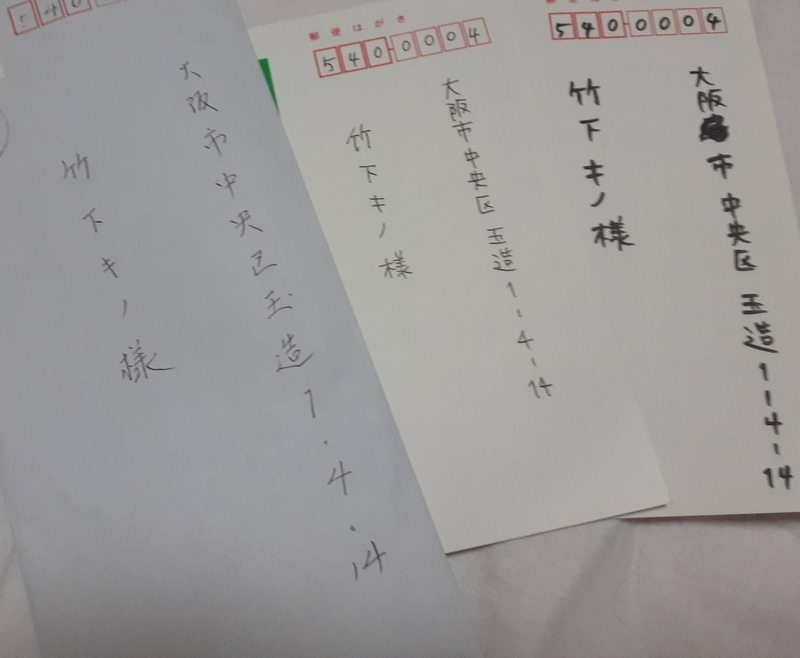 540
大阪市中央区玉造1.4.14
竹下キノ様
郵便はがき
540-0004
大阪市中央区玉造1-4-14
竹下キノ様
540-0004
大阪市中央区玉造1-4-14
竹下キノ様